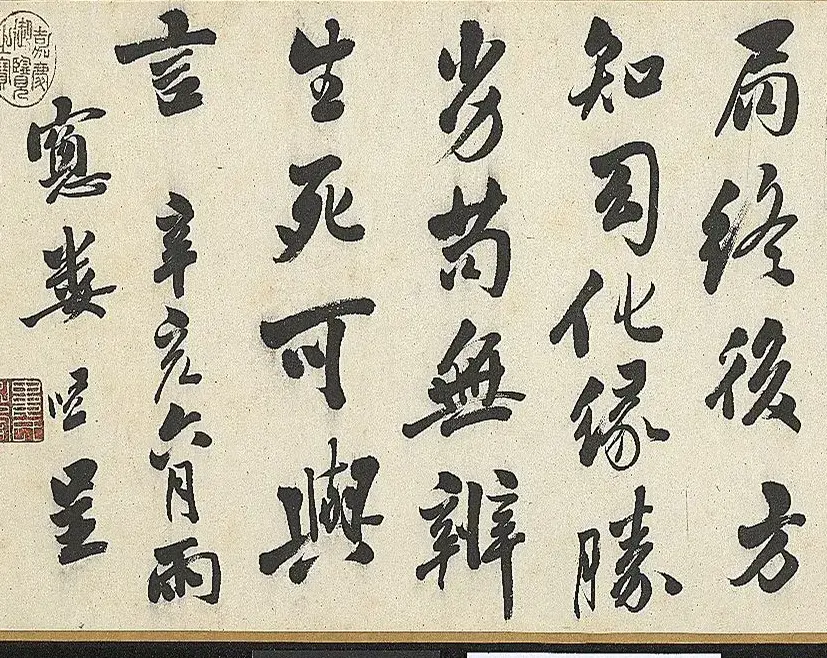 局終後方
知司化緣勝
劣苟無辨
生死可與
言 辛亥六月雨
窻婁堅呈
嘉慶御覽之寶